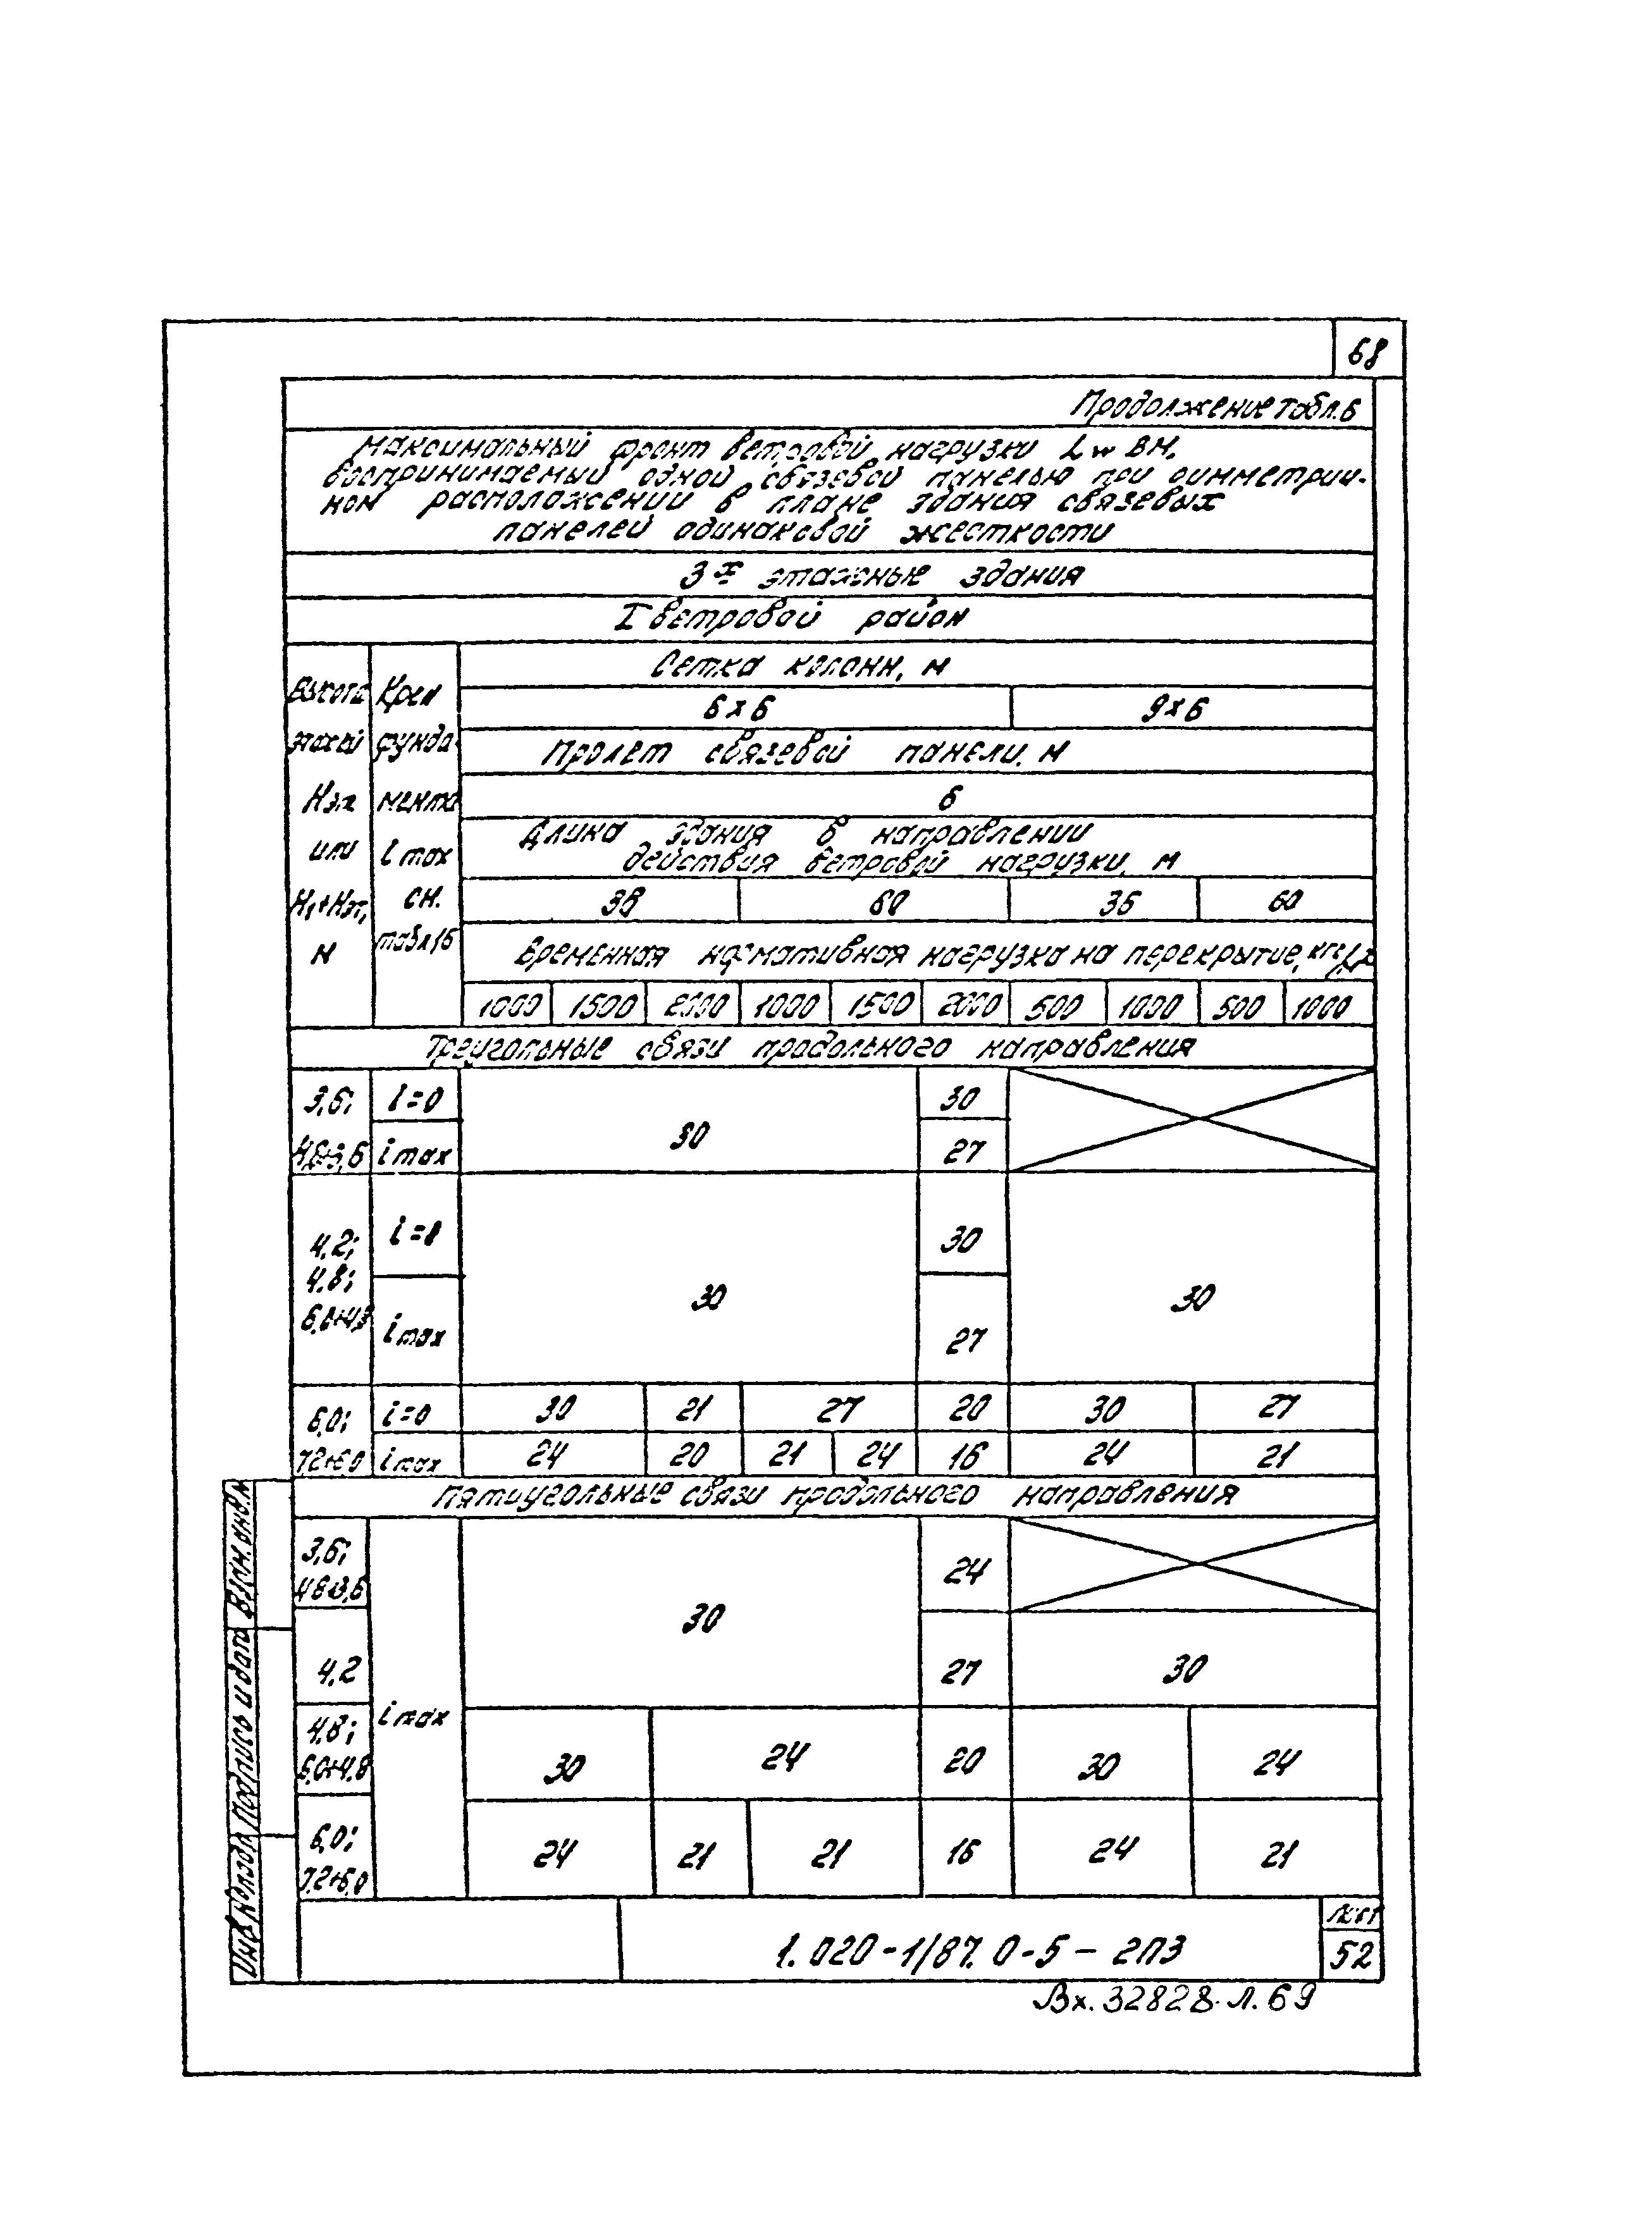 68
Продолжение табл.6
Максимальный фронт ветровой нагрузки Lw вм,
воспринимаемый одной связевой панелью при симметрич-
ном расположении в плане здания связевых
панелей одинаковой жесткости
3х этажные здания
I ветровой район
Высота этажей Нэт или Н1+Нэт, м
Крен фундамента imax см. табл.16
Сетка колонн, м
6x6 9x6
Пролет связевой панели, м
6
Длина здания в направлении
действия ветровой нагрузки, м
36 60 36 60
Временная нормативная нагрузка на перекрытие,
1000 1500 2000 1000 1500 2000 500 1000 500 1000
Треугольные связи продольного направления
3,6; i=0 30 30
4,8+3,6 imax 27
4,2; i=0 30 30 30
4,8;
6,0+4,8 imax 27
6,0; i=0 30 21 27 20 30 27
7,2+6,0 imax 24 20 21 24 16 24 21
Пятиугольные связи продольного направления
3,6;
4,8+3,6 imax 30 24
4,2 27 30
4,8;
6,0+4,8 30 24 20 30 24
6,0;
7,2+6,0 24 21 21 16 24 21
Инв.№подл Подпись и дата Взам.инв.№
1.020-1/87. 0-5 - 2ПЗ
Лист
52
Вх. 32828. Л. 69